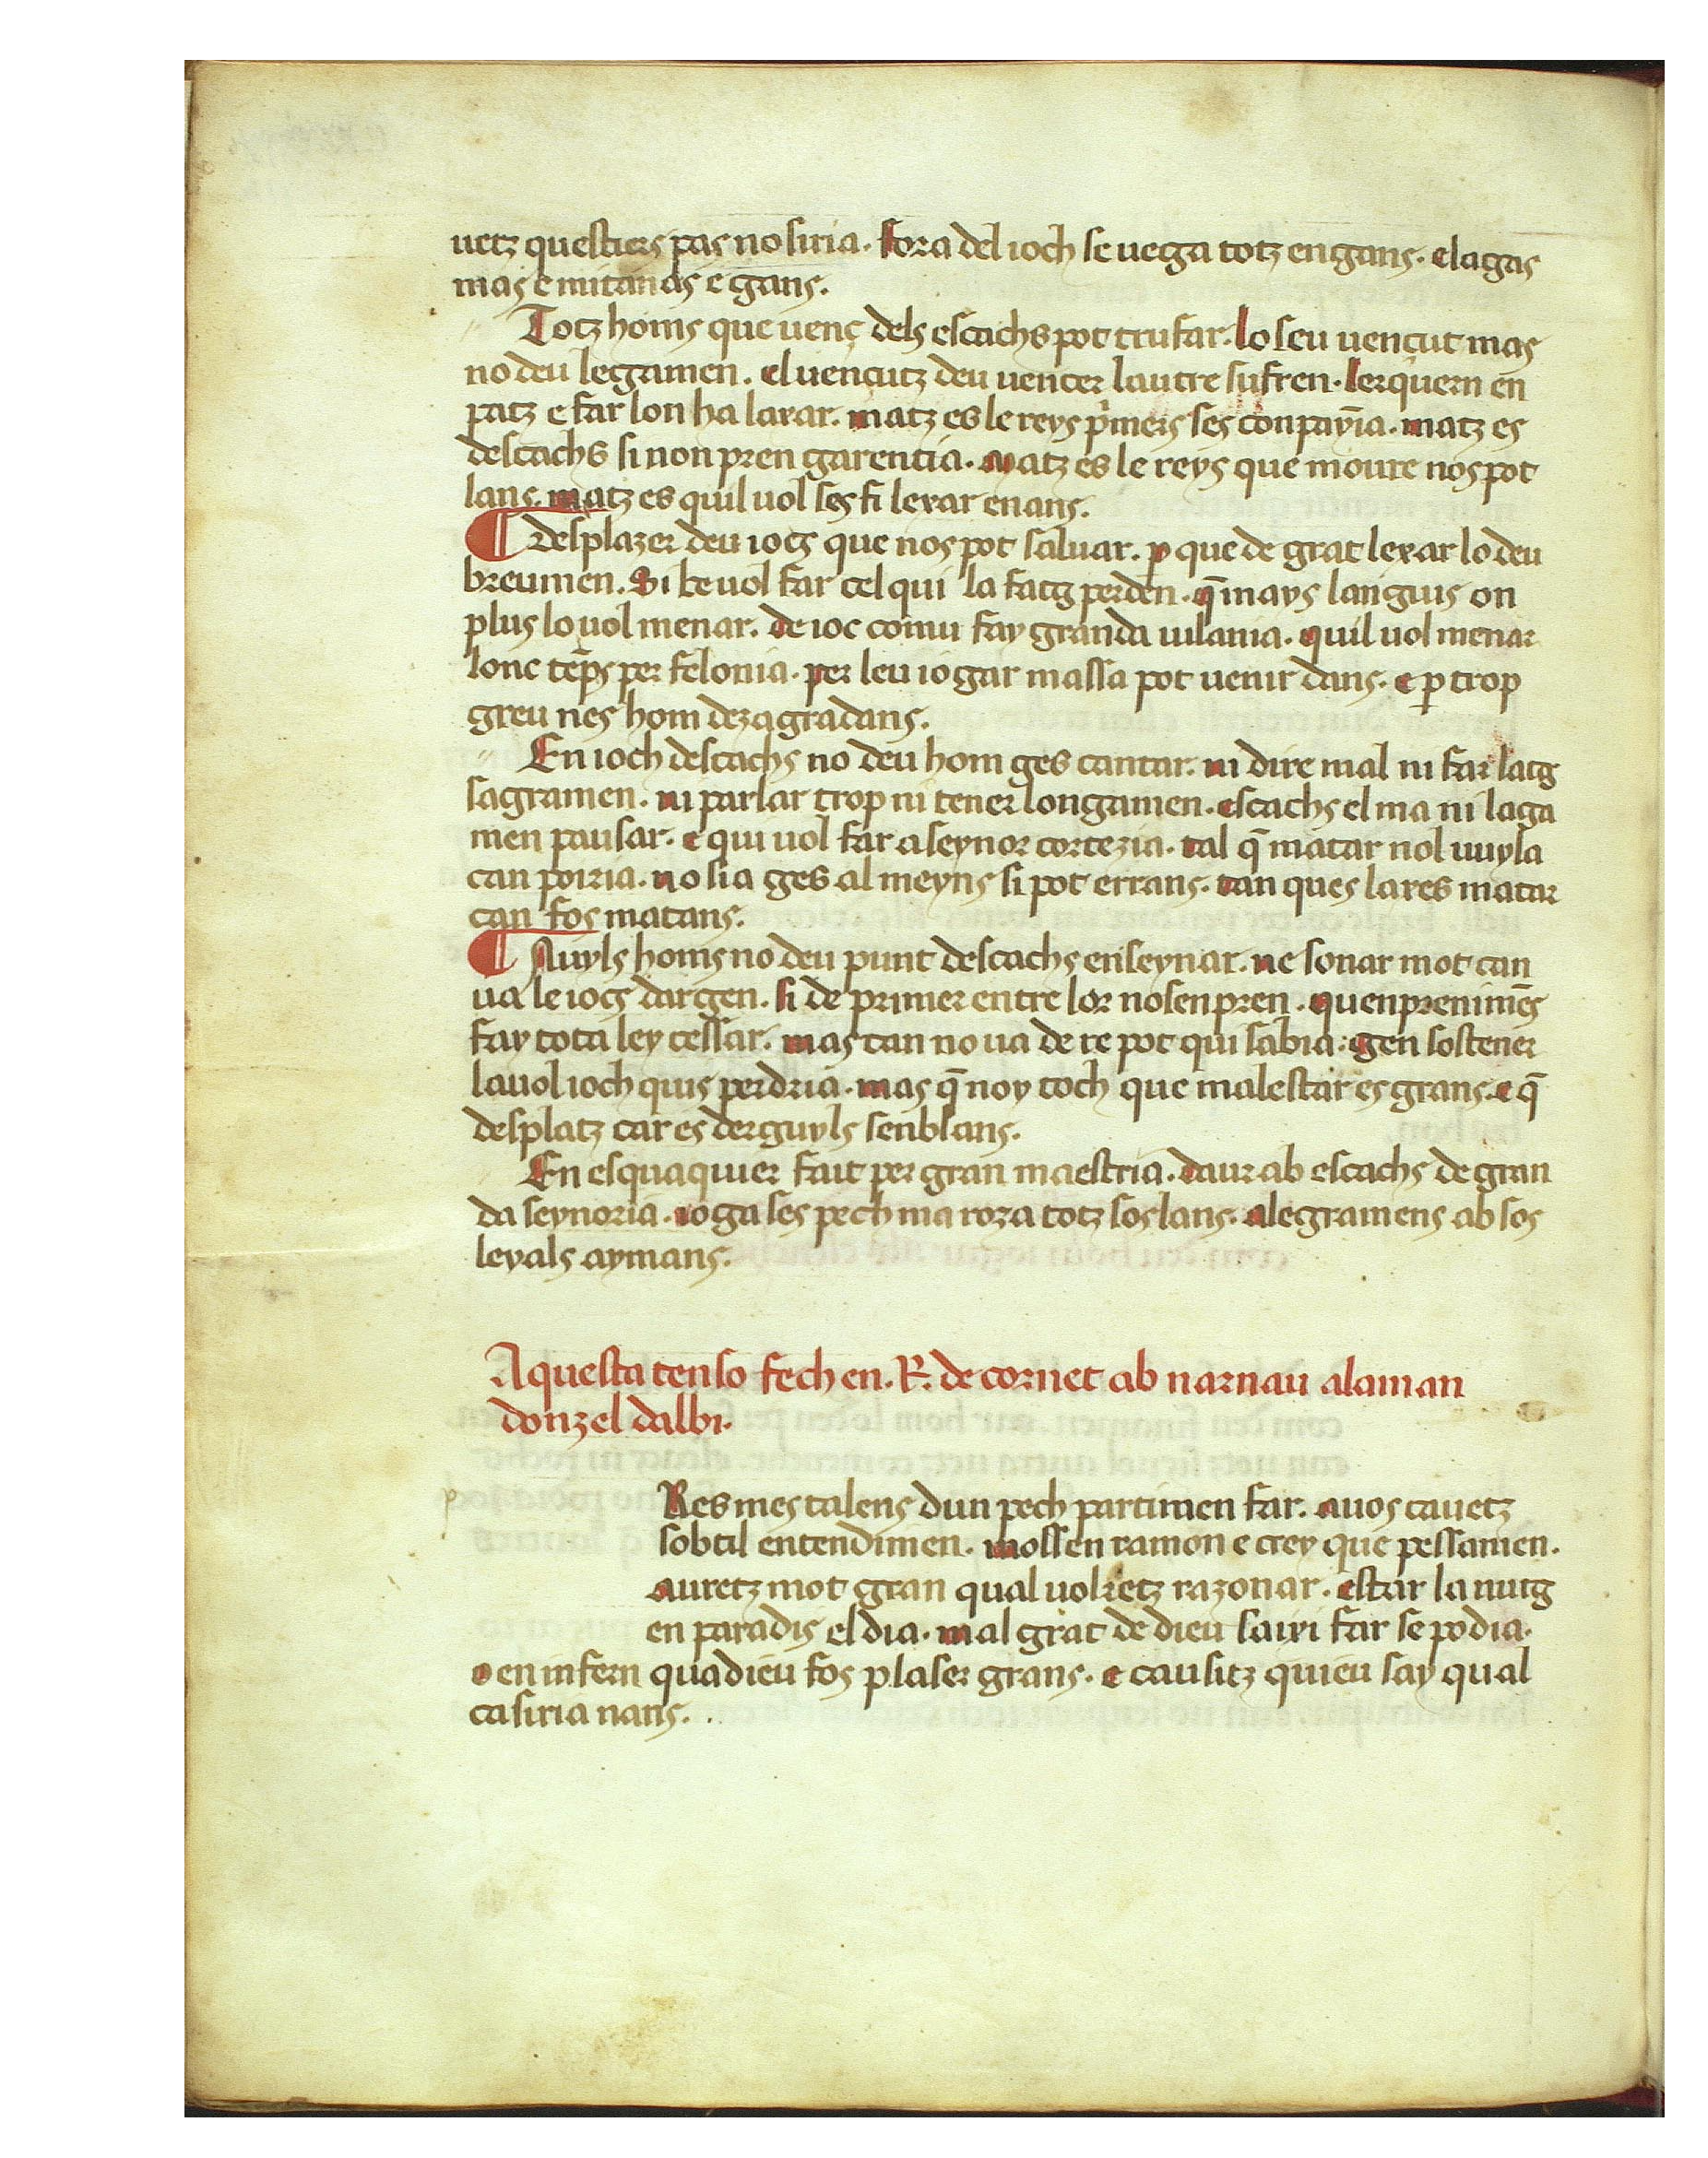 uetz questiers pas no siria. fora del ioch se uega totz engans. elagas
mas e mitanas e gans.
Totz homs que uenç dels escachs pot trufar. lo seu uencut mas
no deu legamen. el uencutz deu uencer lautre sufren. lexquern en
patz e far lon ha laxar. matz es le reys pᷤmers ses conpayīa. matz es
descachs si non pren garentia. matz es le reys que moure nos pot
lans. matz es quil uol ses fi lexar enans.
¶ desplazer deu iocs que nos pot saluar. p que de grat lexar lo deu
breumen. Si be uol far cel qui la fatg perden. q̄ mays languis on
plus lo uol menar. de ioc comu fay granda uilania. quil uol menar
lonc tēps per felonia. per leu iogar massa pot uenir dans. e p trop
greu nes hom dezagradans.
En ioch descachs no deu hom ges cantar. ni dire mal ni far latg
sagramen. ni parlar trop ni tener longamen. escachs el ma ni laga
men pausar. e qui uol far a seynor cortezia. tal q̄ matar nol uuyla
can poiria. no sia ges al meyns si pot errans. tan ques lares matar
can fos matans.
¶ Auyls homs no deu punt descachs enseynar. ne sonar mot can
ua le iocs dargen. si de primer entre lor nosenpren. quenprenimēs
fay tota ley cessar. mas tan no ua de re pot qui sabia. gen sostener
lauol ioch quis perdria. mas q̄ noy toch que malestar es grans. e q̄
desplatz car es derguyls senblans.
En esquaquier fait per gran maestria. daur ab escachs de gran
da seynoria. ioga ses pech ma roza totz soslans. alegramens ab sos
leyals aymans.
Aquesta tenso fech en. R. de cornet ab narnau alaman
donzel dalbi.
p
Res mes talens dun pech partimen far. auos cauetz
sobtil entendimen. mossen ramon e crey que pessamen.
auretz mot gran qual uolretz razonar. estar la nutg
en paradis el dia. mal grat de dieu saixi far se podia.
o en infern quadieu fos plaser grans. e causitz quieu say qual
casiria nans.